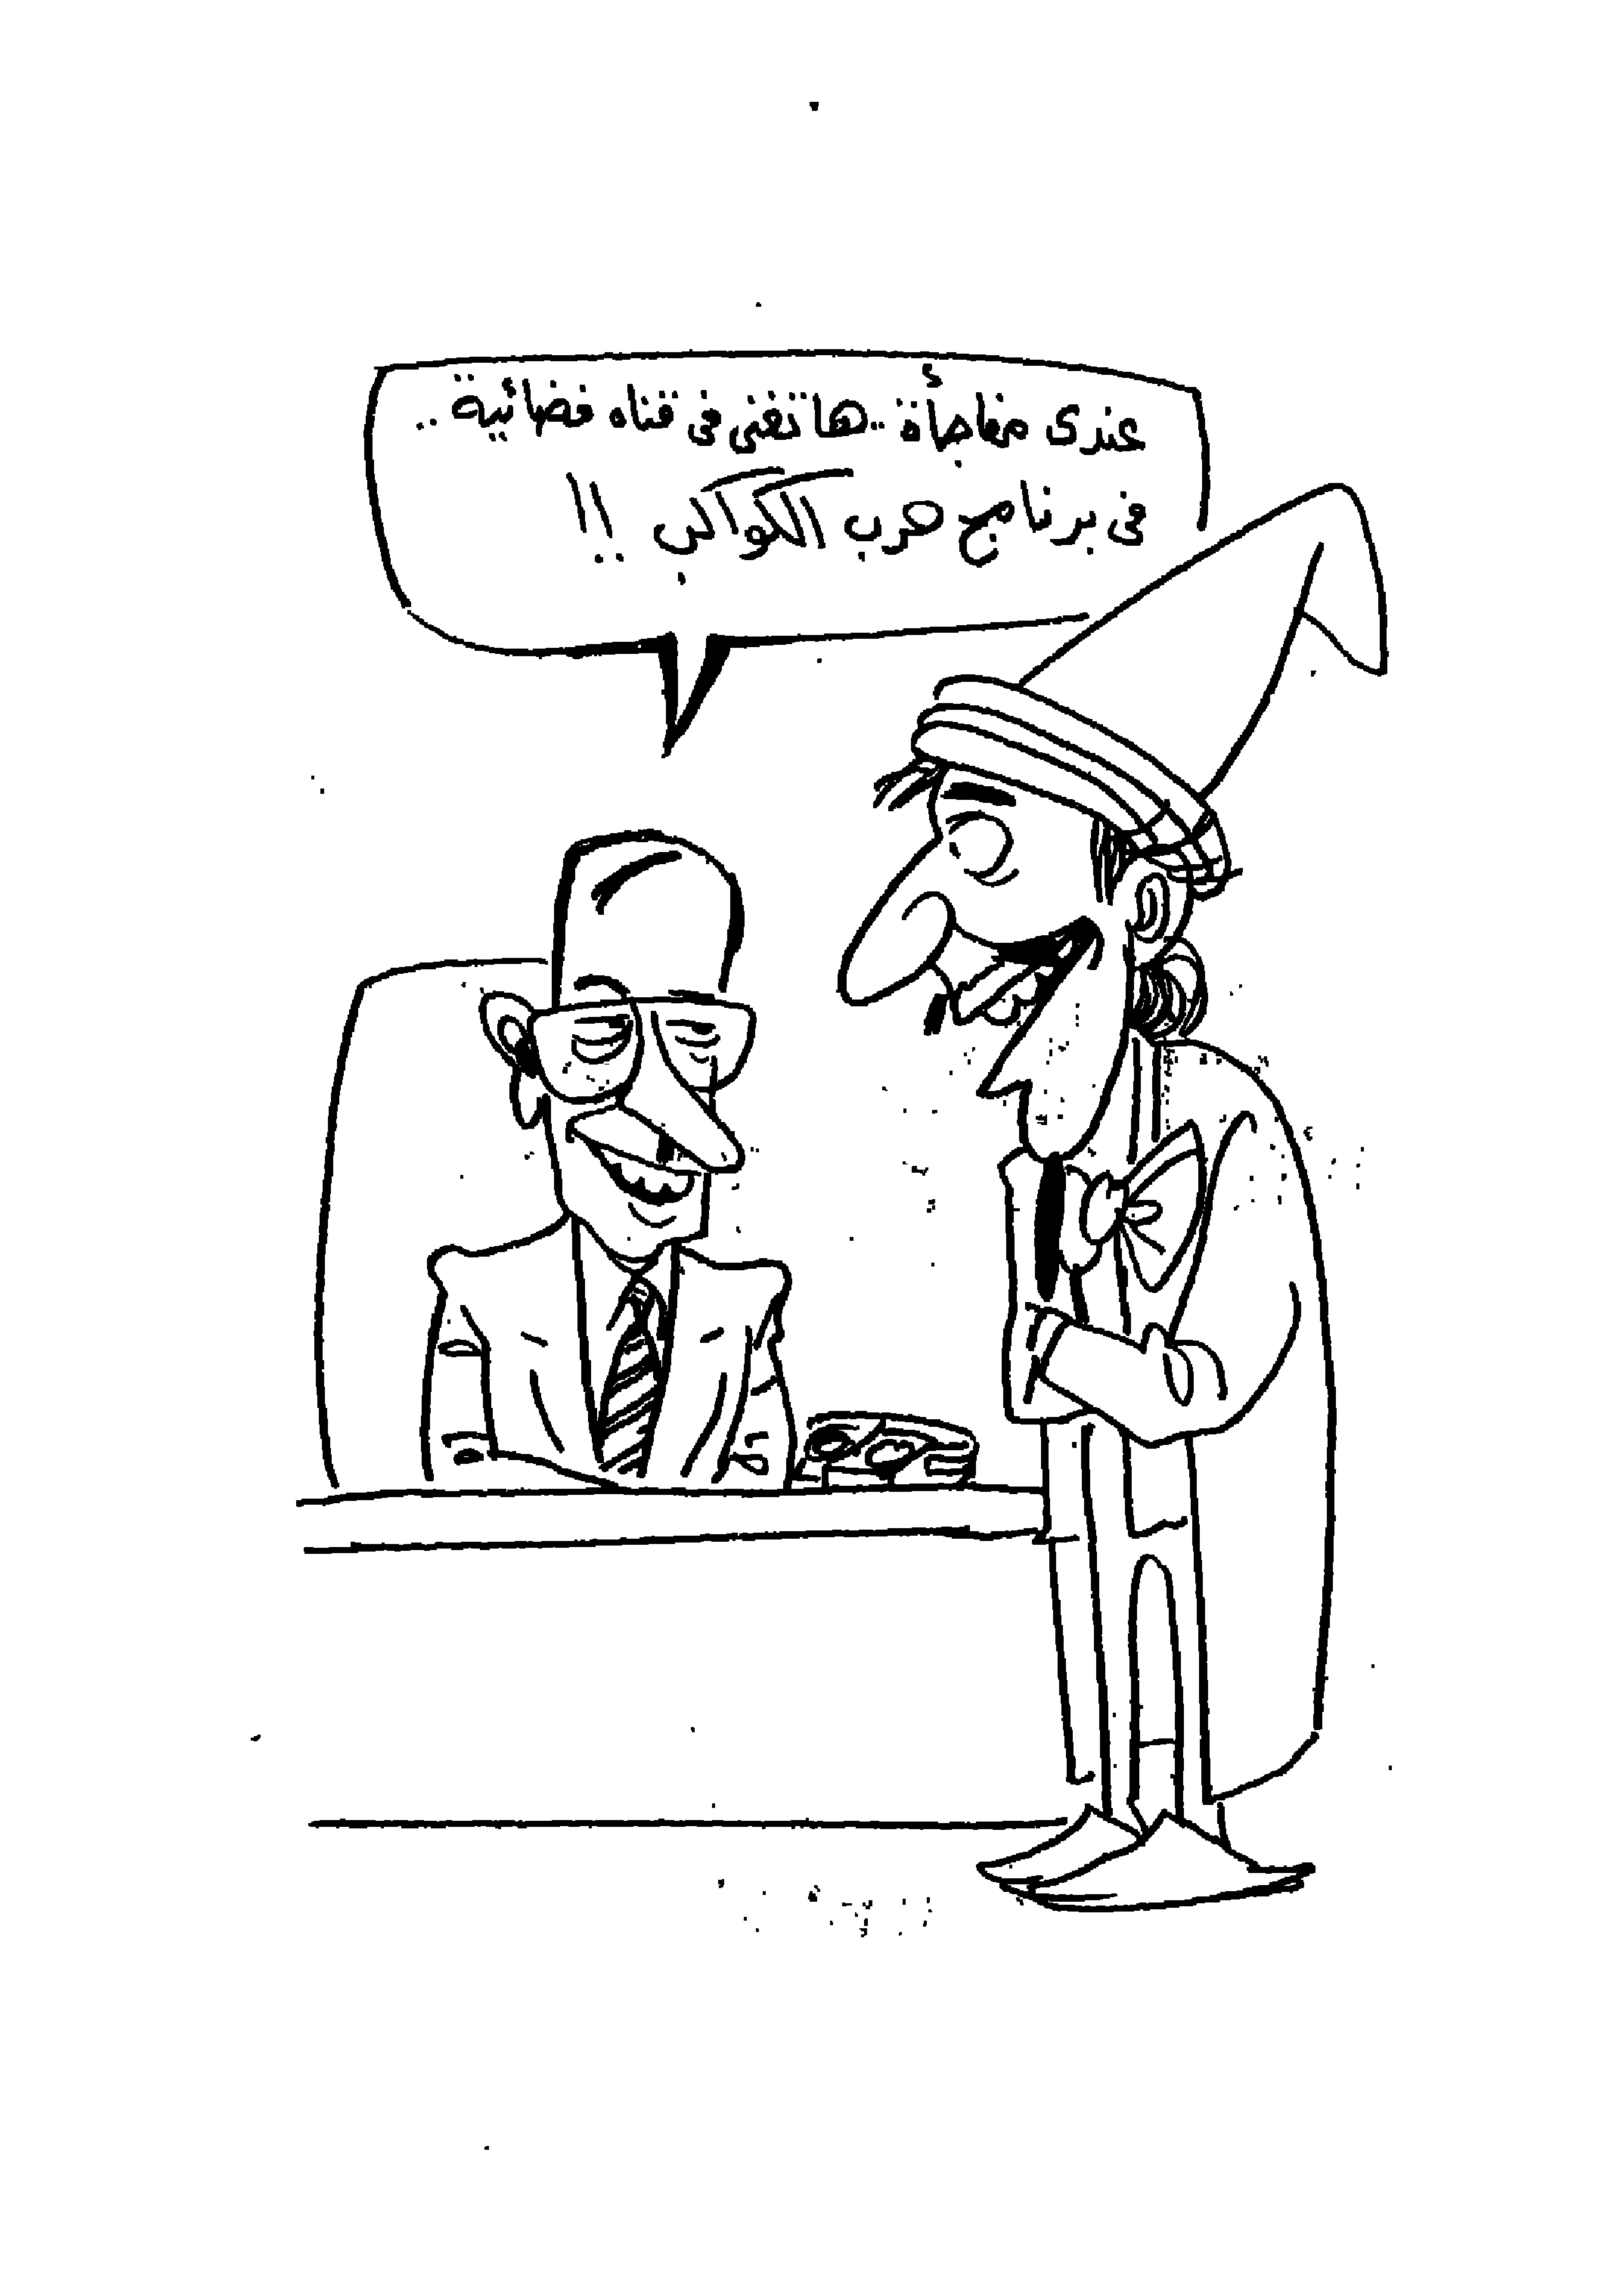 عندى مفاجأة .. هاتغنى فى قناه فضائية ..
فى برنامج حرب الكواكب !!